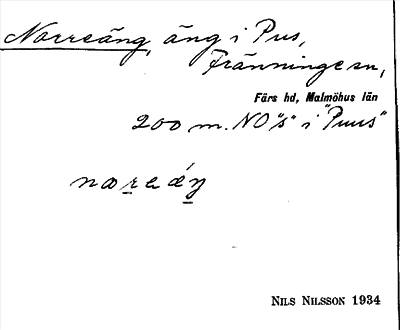 Norreäng, äng i Pus,
Fränninge sn,
Färs hd, Malmöhus län
200 m. NO "s" i "Puus"
noreäŋ
NILS NILSSON 1934